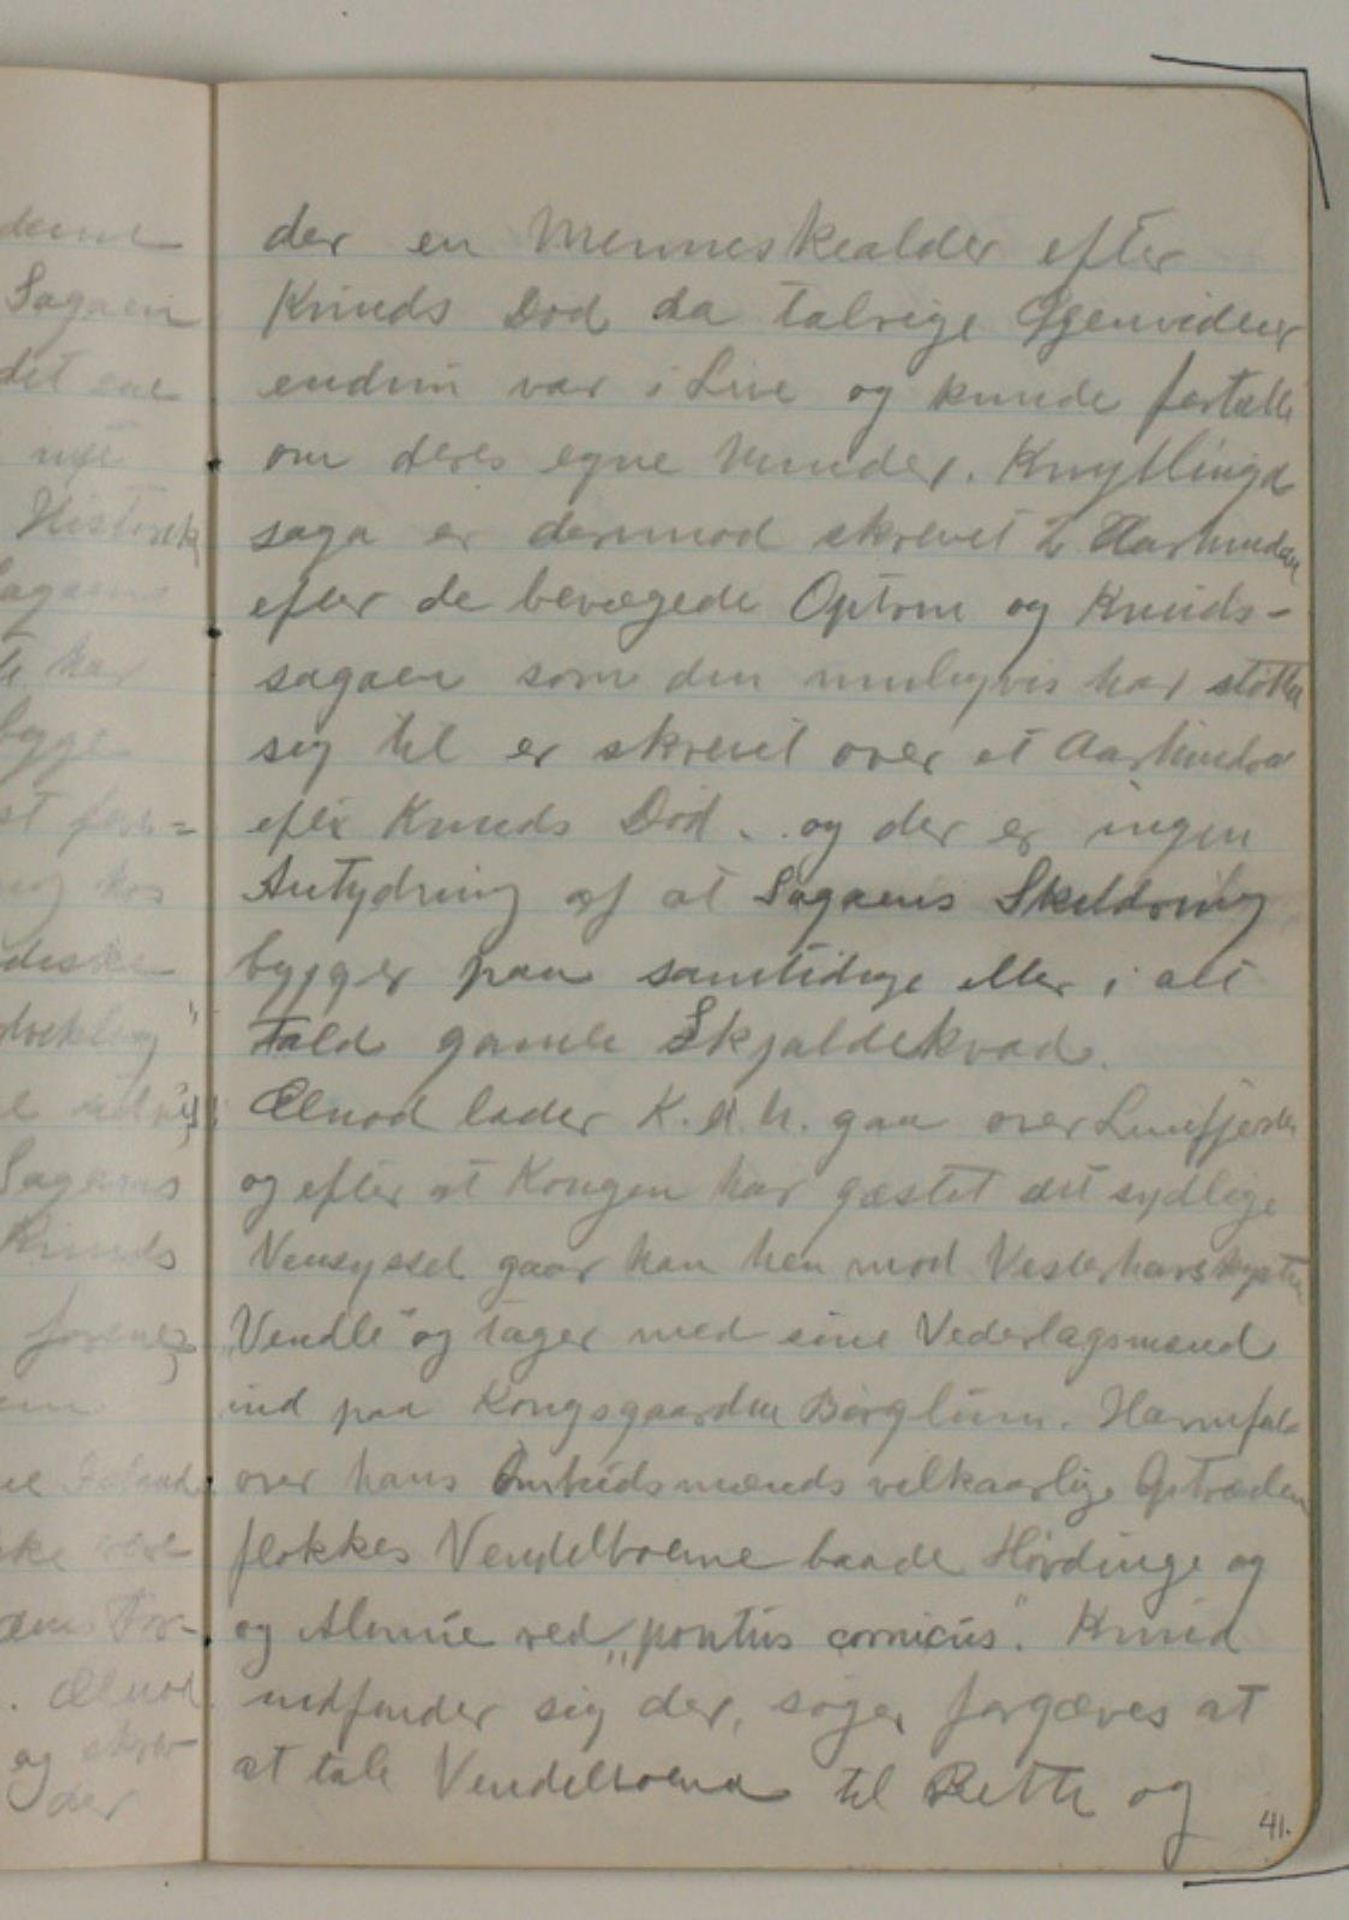 der en Menneskealder efter
Knuds Død da talrige Øjenvidner
endnu var i Live og kunde fortælle
om deres egne Minder. Knytlinga
saga er derimod skrevet 2 Aarhundr
efter de bevægede Optrin og Knuds-
sagaen som den muligvis har støttet
sig til er skrevet over et Aarhundre
efter Knuds Død. og der er ingen
Antydning af at Sagaens Skildring
bygger paa samtidige eller i alt
Fald gamle Skjaldekvad.
Ælnod lader K.d.h. gaa over Limfjorden
og efter at Kongen har gæstet det sydlige
Vensyssel gaar han hen mod Vesterhavskysten
"Vendle" og tager med sine Vederlagsmænd
ind paa Kongsgaarden Børglum. Harmfuld
over hans Ombudsmænds vilkaarlige Optræden
flokkes Vendelboerne baade Høvdinge og
og Almue ved "pontus cornicus". Knud
indfinder sig der, søger forgæves at
at tale Vendelboerne til Rette og
41.
denne
Sagaen
det
Historisk
Sagaens
har
bygge
Sagaens
Knuds
Ælnod
og skrev
der